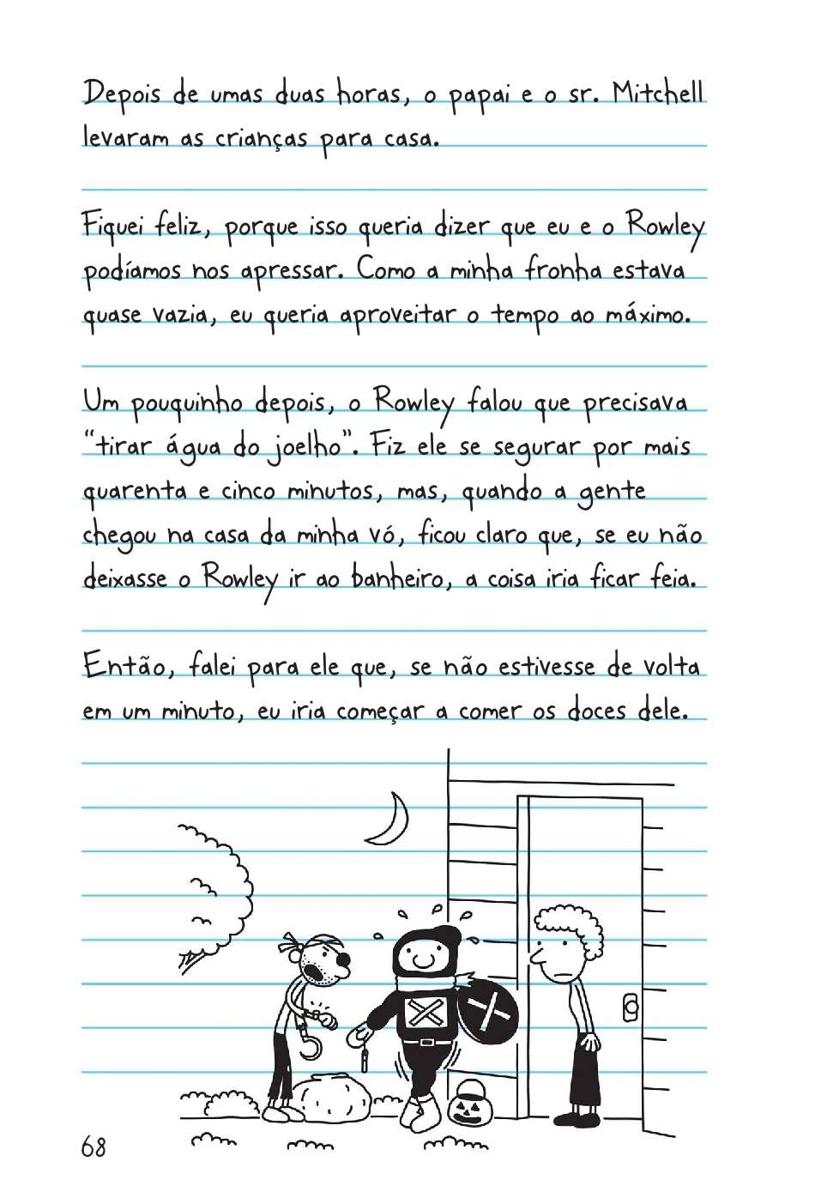 Depois de umas duas horas, o papai e o sr. Mitchell
levaram as crianças para casa.
Fiquei feliz, porque isso queria dizer que eu e o Rowley
podíamos nos apressar. Como a minha fronha estava
quase vazia, eu queria aproveitar o tempo ao máximo.
Um pouquinho depois, o Rowley falou que precisava
“tirar água do joelho”. Fiz ele se segurar por mais
quarenta e cinco minutos, mas, quando a gente
chegou na casa da minha vó, ficou claro que, se eu não
deixasse o Rowley ir ao banheiro, a coisa iria ficar feia.
Então, falei para ele que, se não estivesse de volta
em um minuto, eu iria começar a comer os doces dele.
68